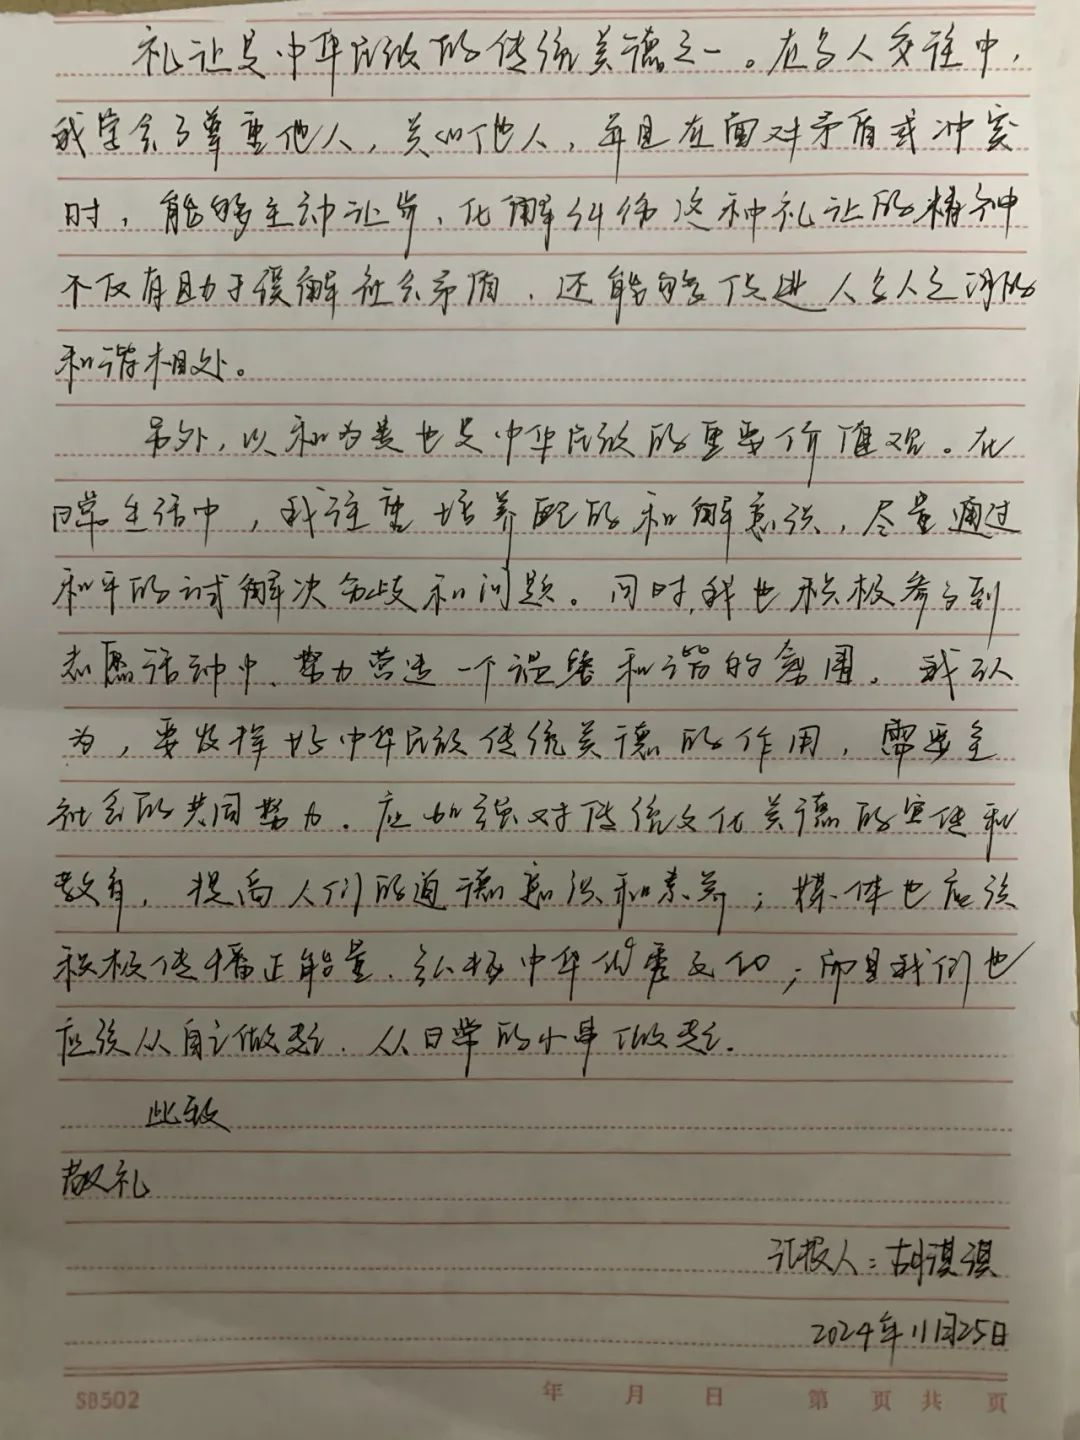 礼让是中华民族的传统美德之一。在与人交往中，
我学会了尊重他人，关心他人，并且在面对矛盾或冲突
时，能够主动让步，化解纠纷这种礼让的精神
不仅有助于缓解社会矛盾，还能够促进人与人之间的
和谐相处。
另外，以和为贵也是中华民族的重要价值观。在
日常生活中，我注重培养自己的和解意识，尽量通过
和平的方式解决分歧和问题。同时，我也积极参与到
志愿活动中，努力营造一个温馨和谐的氛围。我认
为，要发挥好中华民族传统美德的作用，需要全
社会的共同努力。应加强对传统文化美德的宣传和
教育，提高人们的道德意识和素养；媒体也应该
积极传播正能量，弘扬中华优秀文化；而且我们也
应该从自己做起，从日常的小事做起。
此致
敬礼
汇报人：胡淇淇
2024年11月25日
SB502 年 月 日 第 页 共 页